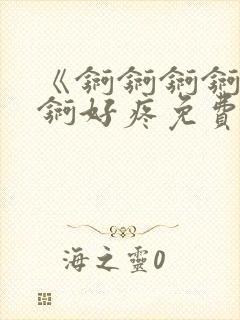 《锕锕锕锕
锕好疼免費
海之靈0